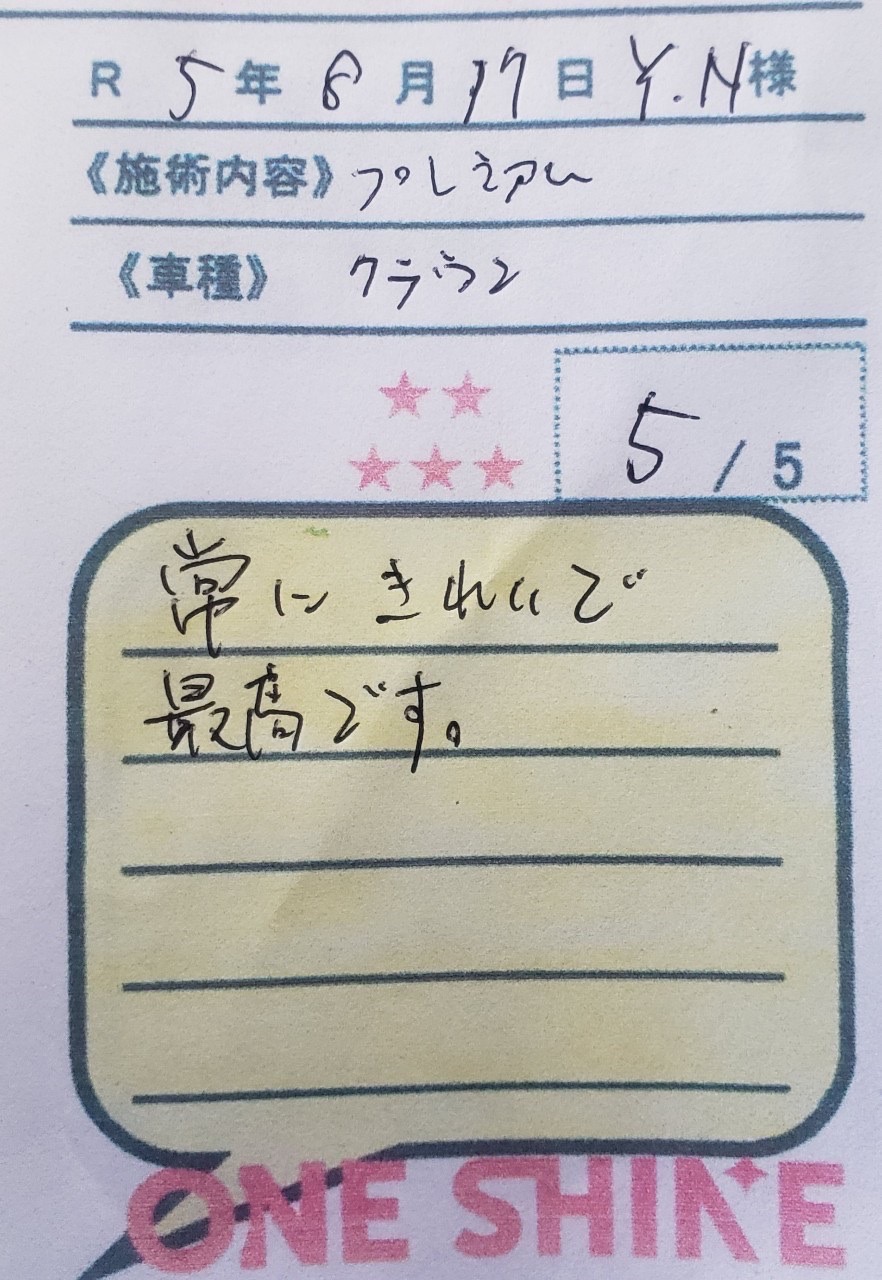 R 5年8月17日 Y.N様
《施術内容》プレミアム
《車種》クラウン
★★
★★★
5/5
常にきれいで
最高です。
ONE SHINE